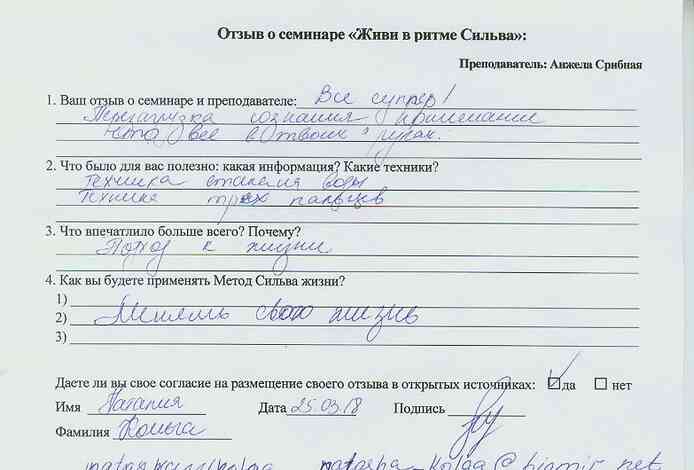 Отзыв о семинаре «Живи в ритме Сильва»:
Преподаватель: Анжела Срибная
1. Ваш отзыв о семинаре и преподавателе: Все суппер!
Перезагрузка сознания
что все в твоих руках.
2. Что было для вас полезно: какая информация? Какие техники?
Техника стакана воды
Техника трех пальцев
3. Что впечатлило больше всего? Почему?
Поход к жизни
4. Как вы будете применять Метод Сильва жизни?
1)
2) Менять свою жизнь
3)
Даете ли вы свое согласие на размещение своего отзыва в открытых источниках: да нет
Имя Наталия Дата 25.03.18 Подпись
Фамилия Кольга